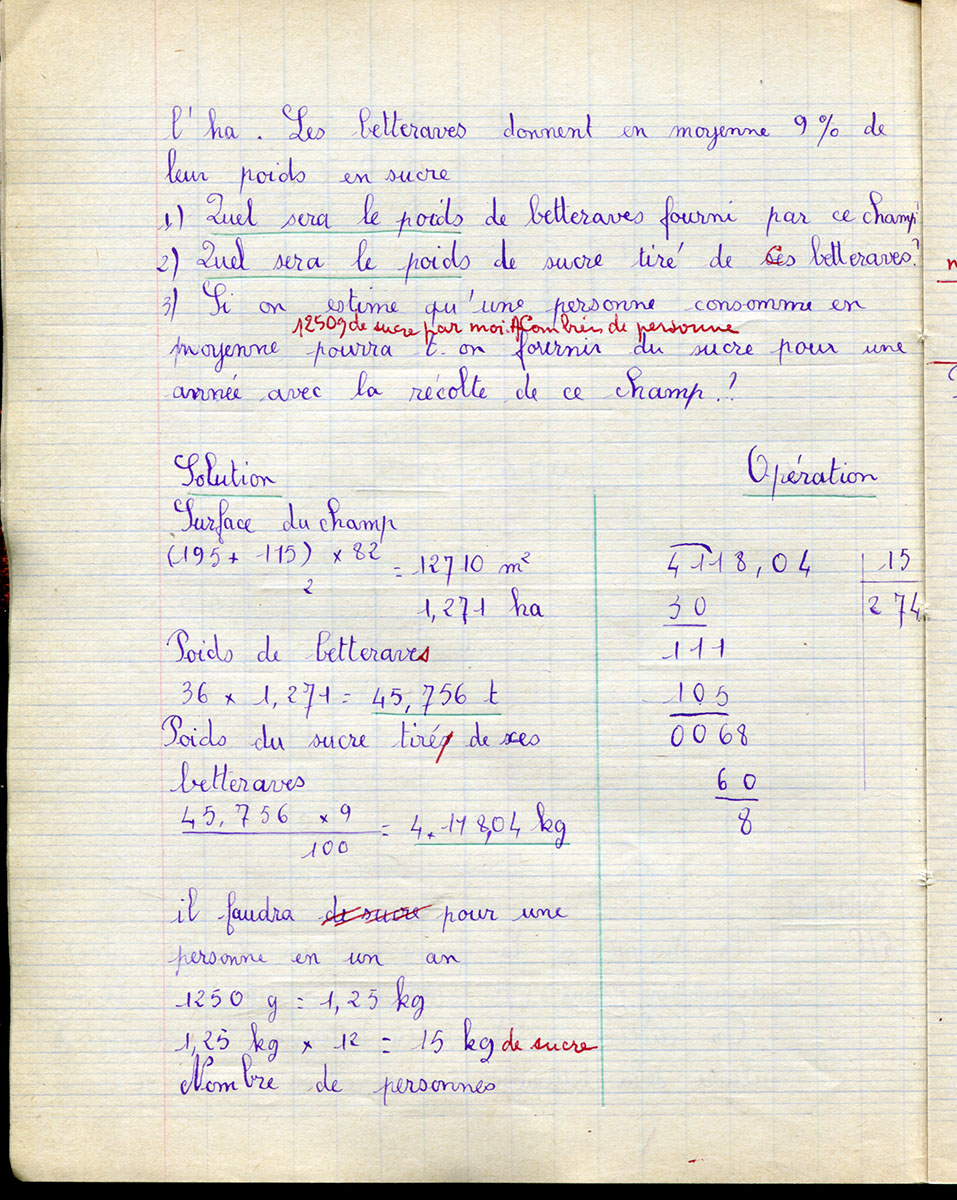 l'ha. Les betteraves donnent en moyenne 9% de
leur poids en sucre
1) Quel sera le poids de betteraves fourni par ce champ
2) Quel sera le poids de sucre tiré de ces betteraves?
3) Si on estime qu'une personne consomme en
1250g de sucre par moi. A Combien de personne
moyenne pourra t-on fournir du sucre pour une
année avec la récolte de ce champ.?
Solution
Opération
Surface du champ
(195 + 115) × 82
2
= 12710 m²
1,271 ha
Poids de betteraves
36 × 1,271 = 45,756 t
Poids du sucre tiré de ces
betteraves
45,756 × 9
100
= 4.118,04 kg
il faudra de sucre pour une
personne en un an
1250 g = 1,25 kg
1,25 kg × 12 = 15 kg de sucre
Nombre de personnes
4118,04 15
30 274
111
105
0068
60
8